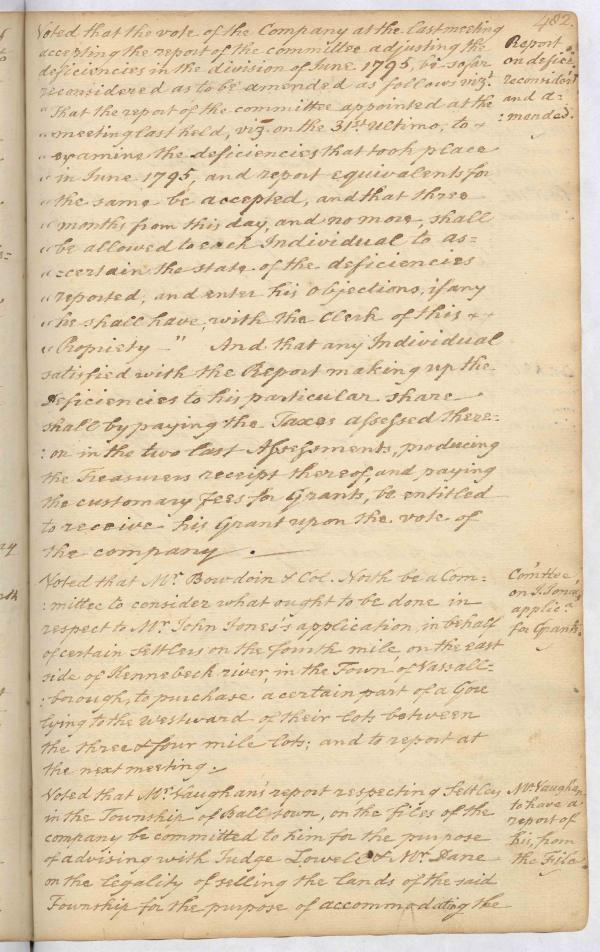 482.
Voted that the vote of the Company at the last meeting
accepting the report of the committee adjusting the
deficiencies in the division of June 1795, be so far
reconsidered as to be amended as follows vizt.
"That the report of the committee appointed at the
"meeting last held, viz. on the 31st Ultimo, to +
"examine the deficiencies that took place
"in June 1795, and report equivalents for
"the same be accepted, and that three
"months from this day, and no more, shall
"be allowed to each Individual to as=
"=certain the state of the deficiencies
"reported, and enter his objections, if any
"he shall have, with the Clerk of this ++
"Propriety —" And that any Individual
satisfied with the Report making up the
Deficiencies to his particular share
shall by paying the Taxes assessed there=
:on in the two last Assessments, producing
the Treasurers receipt thereof, and paying
the customary Fees for Grants, be entitled
to receive his Grant upon the vote of
the company . —
Report
on defice.
reconsider'd
and a=
:mended.
Voted that Mr. Bowdoin & Col. North be a Com=
:mittee to consider what ought to be done in
respect to Mr. John Jones's application, in behalf
of certain Settlers on the fourth mile, on the east
side of Kennebeck river, in the Town of Vassall=
:borough, to purchase a certain part of a Gore
lying to the westward of their lots between
the three & four mile lots; and to report at
the next meeting.
Com'ttee
on J. Jones
applic.n
for Grants.
Voted that Mr. Vaughan's report respecting Settlers
in the Township of Balltown, on the files of the
company be committed to him for the purpose
of advising with Judge Lowell & Mr. Dane
on the legality of selling the lands of the said
Township for the purpose of accommodating the
Mr. Vaughan
to have a
report of
his, from
the File